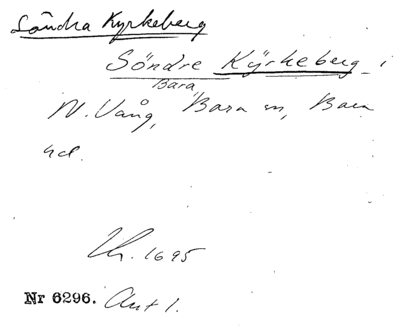 Söndra Kyrkeberg
Söndre Kÿrkeberg i
Bara,
N. Vång, Bara sn, Bara
hd.
Lh. 1695
Nr 6296. Avt 1.